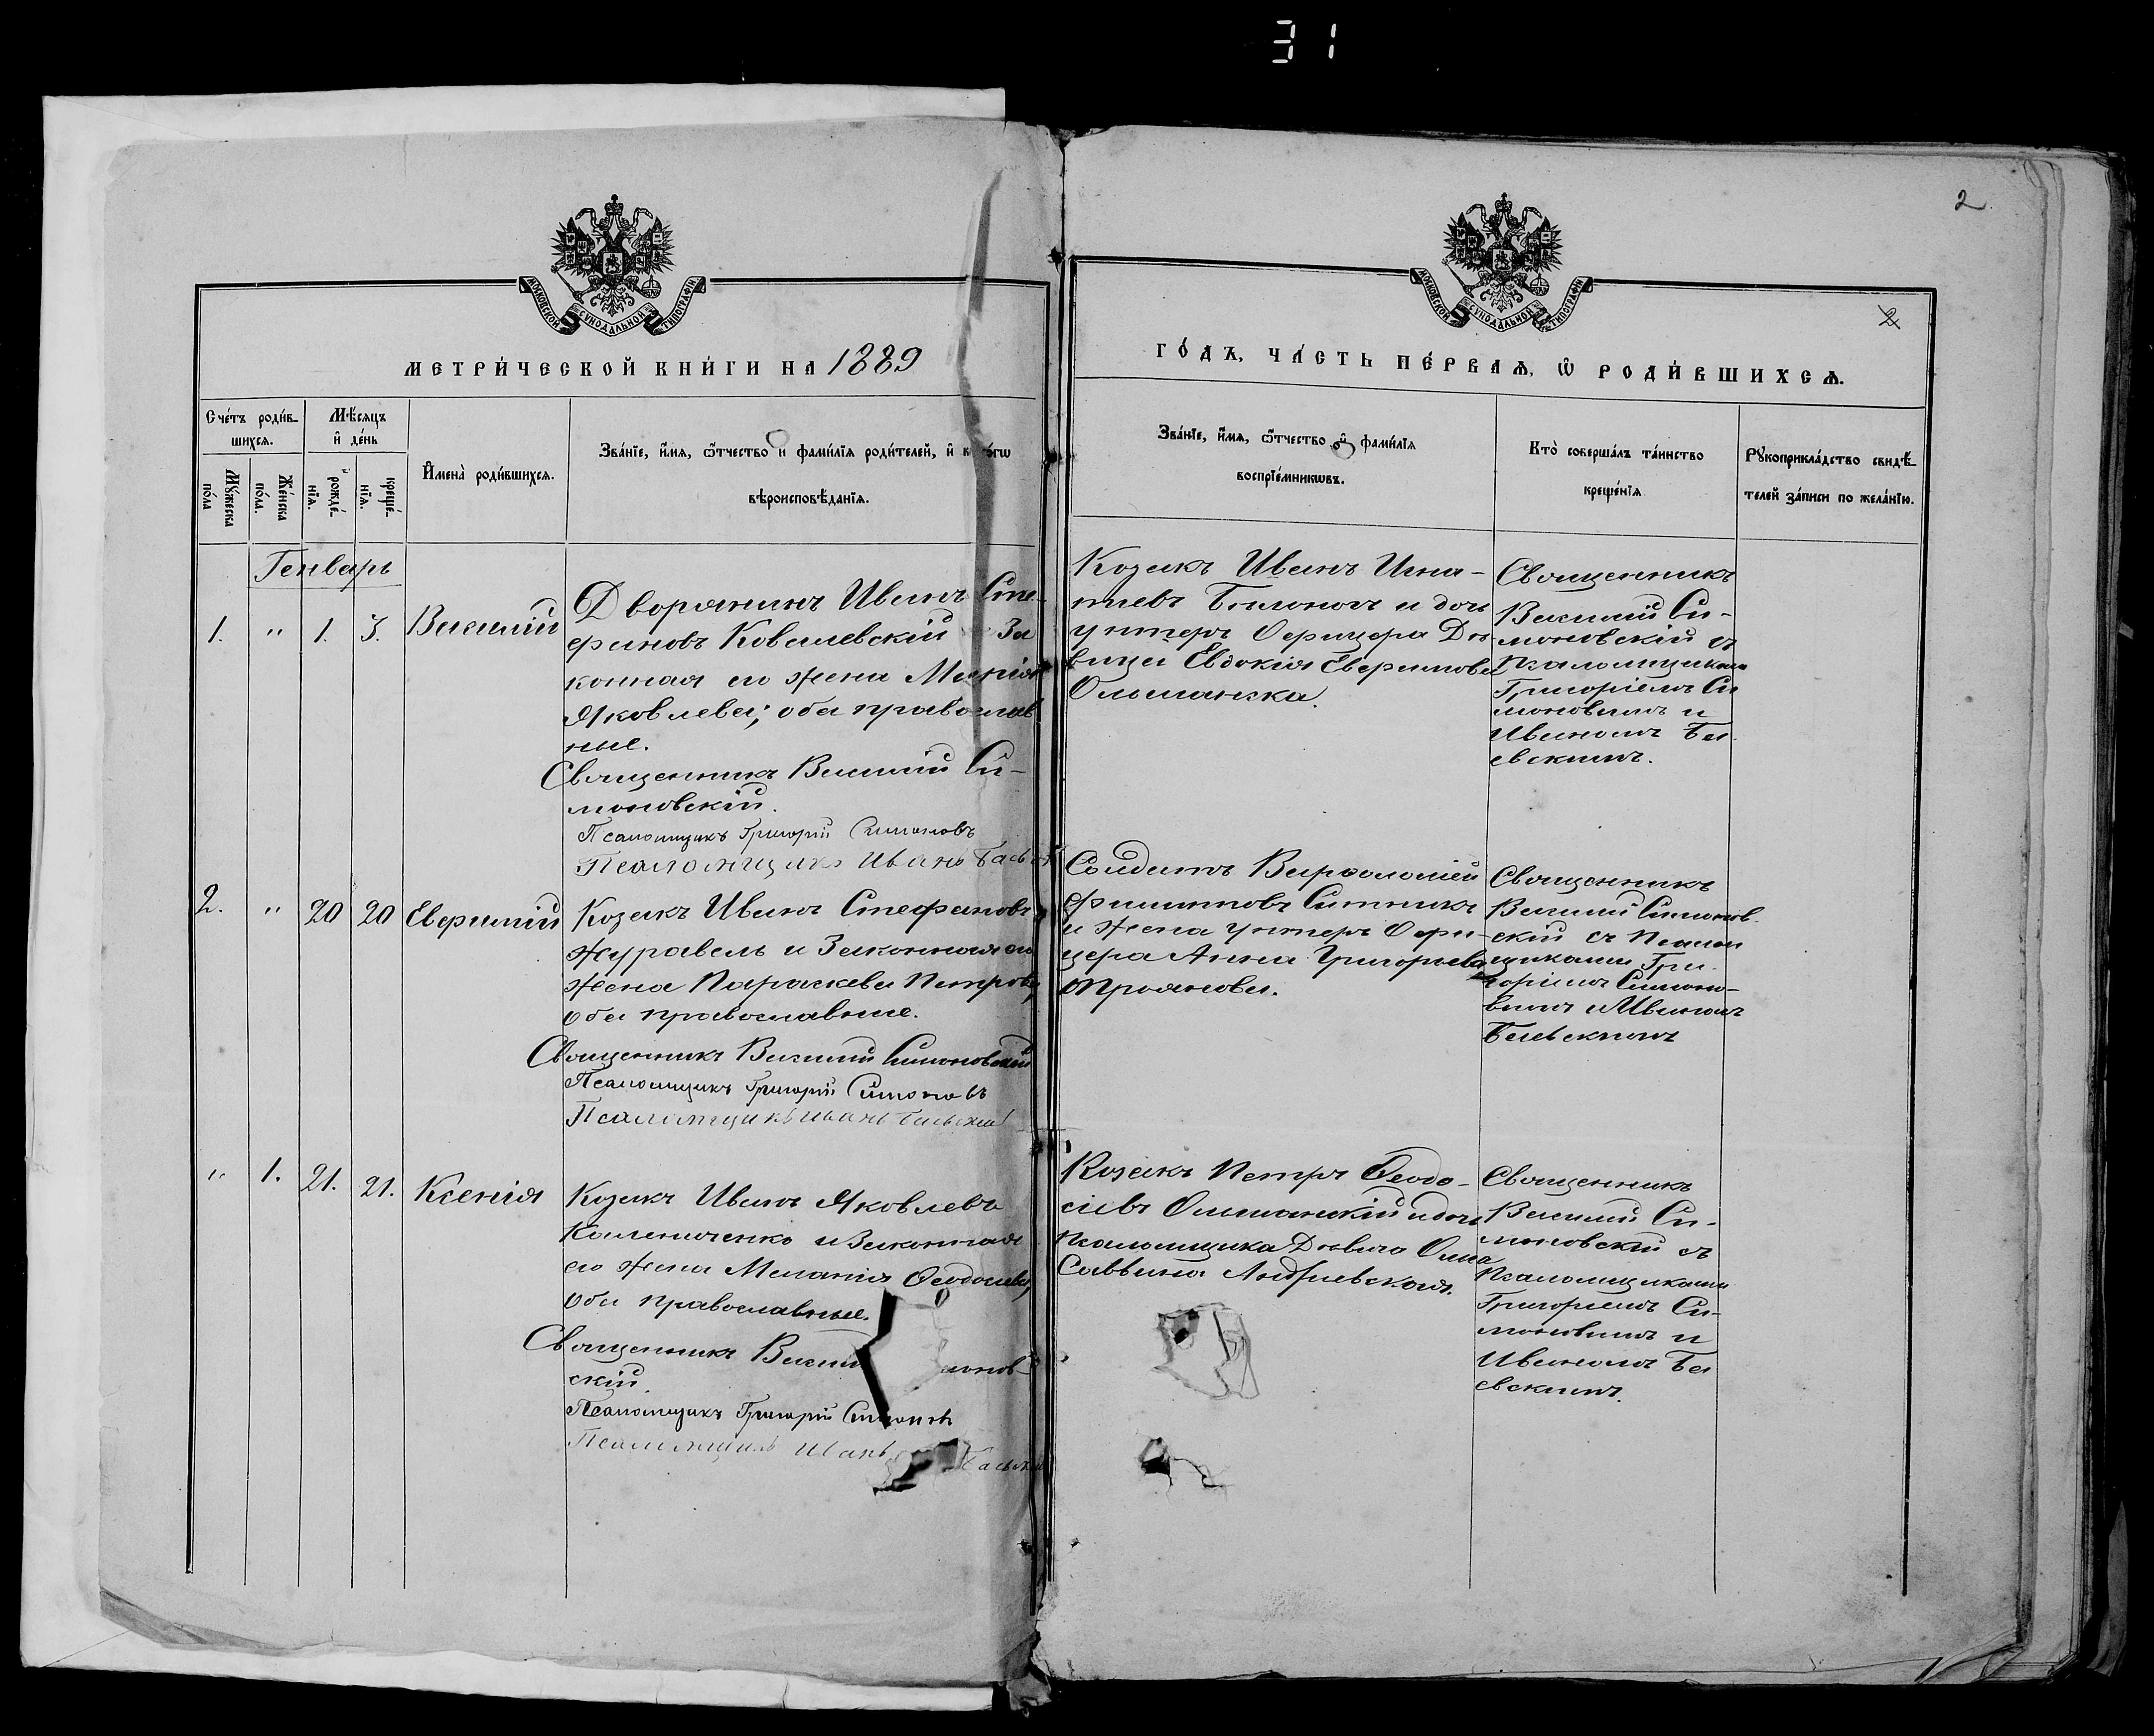 31
2
2
МОСКОВСКОЙ СУНОДАЛЬНОЙ ТИПОГРАФІИ
МОСКОВСКОЙ СУНОДАЛЬНОЙ ТИПОГРАФІИ
МЕТРИ́ЧЕСКОЙ КНИ́ГИ НА 1889
ГО́ДЪ, ЧА́СТЬ ПЕ́РВАѦ, Ѽ РОДИ́ВШИХСѦ.
Сче́тъ роди́в-
шихсѧ.
Мꙋжеска
по́ла
Же́нска
по́ла.
Мѣ́сѧцъ
и҆ де́нь
рожде́-
нїѧ.
креще́-
нїѧ.
И҆мена̀ роди́вшихсѧ.
Зва́нїе, и҆́мѧ, ѻ҆́тчество и фами́лїѧ роди́телей, и҆
вѣроисповѣ́данїѧ.
Зва́нїе, и҆́мѧ, ѻ҆́тчество и҆ фами́лїѧ
воспрїе́мникѡвъ.
Кто̀ соверша́лъ та́инство
креще́нїѧ
Рꙋкоприкла́дство свидѣ́-
телей за́писи по жела́нїю.
Генварь
1. " 1. 3. Василій
Дворянинъ Иванъ Сте-
фановъ Ковалевскій За
конная его жена Марія
Яковлева; оба православ
ные.
Священникъ Василій Си-
моновскій.
Псаломщикъ Григорій Симоновъ
Псаломщикъ Иванъ
Козакъ Иванъ Игна-
тіевъ и дочь
унтеръ Офицера Дѣ-
вица Евдокія Евфимова
Ольшанска.
Священникъ
Василій Си-
моновскій съ
псаломщиками
Григоріемъ Си
моновымъ и
Иваномъ Ба
евскимъ.
2. " 20 20 Евфимій
Козакъ Иванъ Стефановъ
Журавель и Законная его
жена Параскева Петрова,
оба православные.
Священникъ Василій Симоновскій
Псаломщикъ Григорій Симоновъ
Псаломщикъ Иванъ
Солдатъ Варѳоломей
Филипповъ Ситникъ
и жена унтеръ Офи-
цера Анна Григорьева
Троянова.
Священникъ
Василій Симонов-
скій съ Псалом
щиками Гри-
горіемъ Симоно-
вымъ и Иваномъ
" 1. 21. 21. Ксенія
Козакъ Иванъ Яковлевъ
и Законная
его жена Меланія Ѳеодосіева,
Оба православные.
Священникъ Васи монов-
скій.
Псаломщикъ Григорій Симоновъ
Псаломщикъ Иванъ
Козакъ Петръ Ѳеодо-
сіевъ Ольшанскій и дочь
псаломщика Дѣвица
Саввина
Священникъ
Василій Си-
моновскій съ
Псаломщиками
Григоріемъ Си-
моновымъ и
Иваномъ Ба
евскимъ.